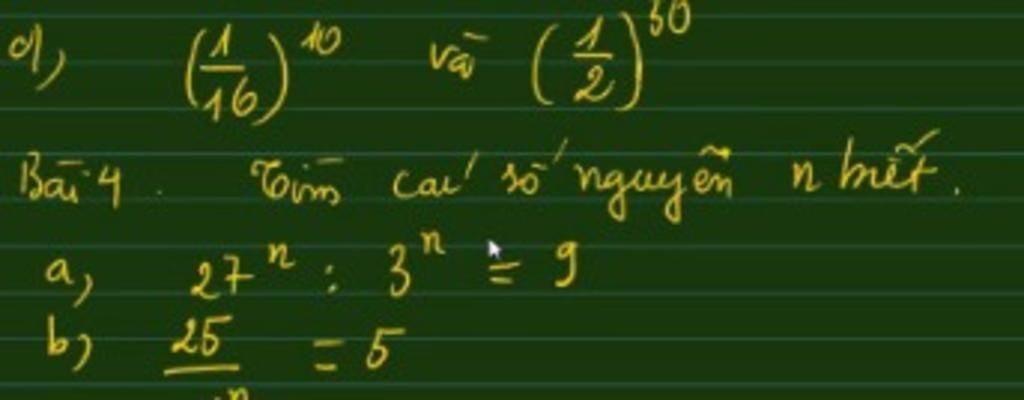 d), (1/16)^10 và (1/2)^50
Bài 4. Tìm các số nguyên n biết.
a, 27^n : 3^n = 9
b) 25/ n = 5